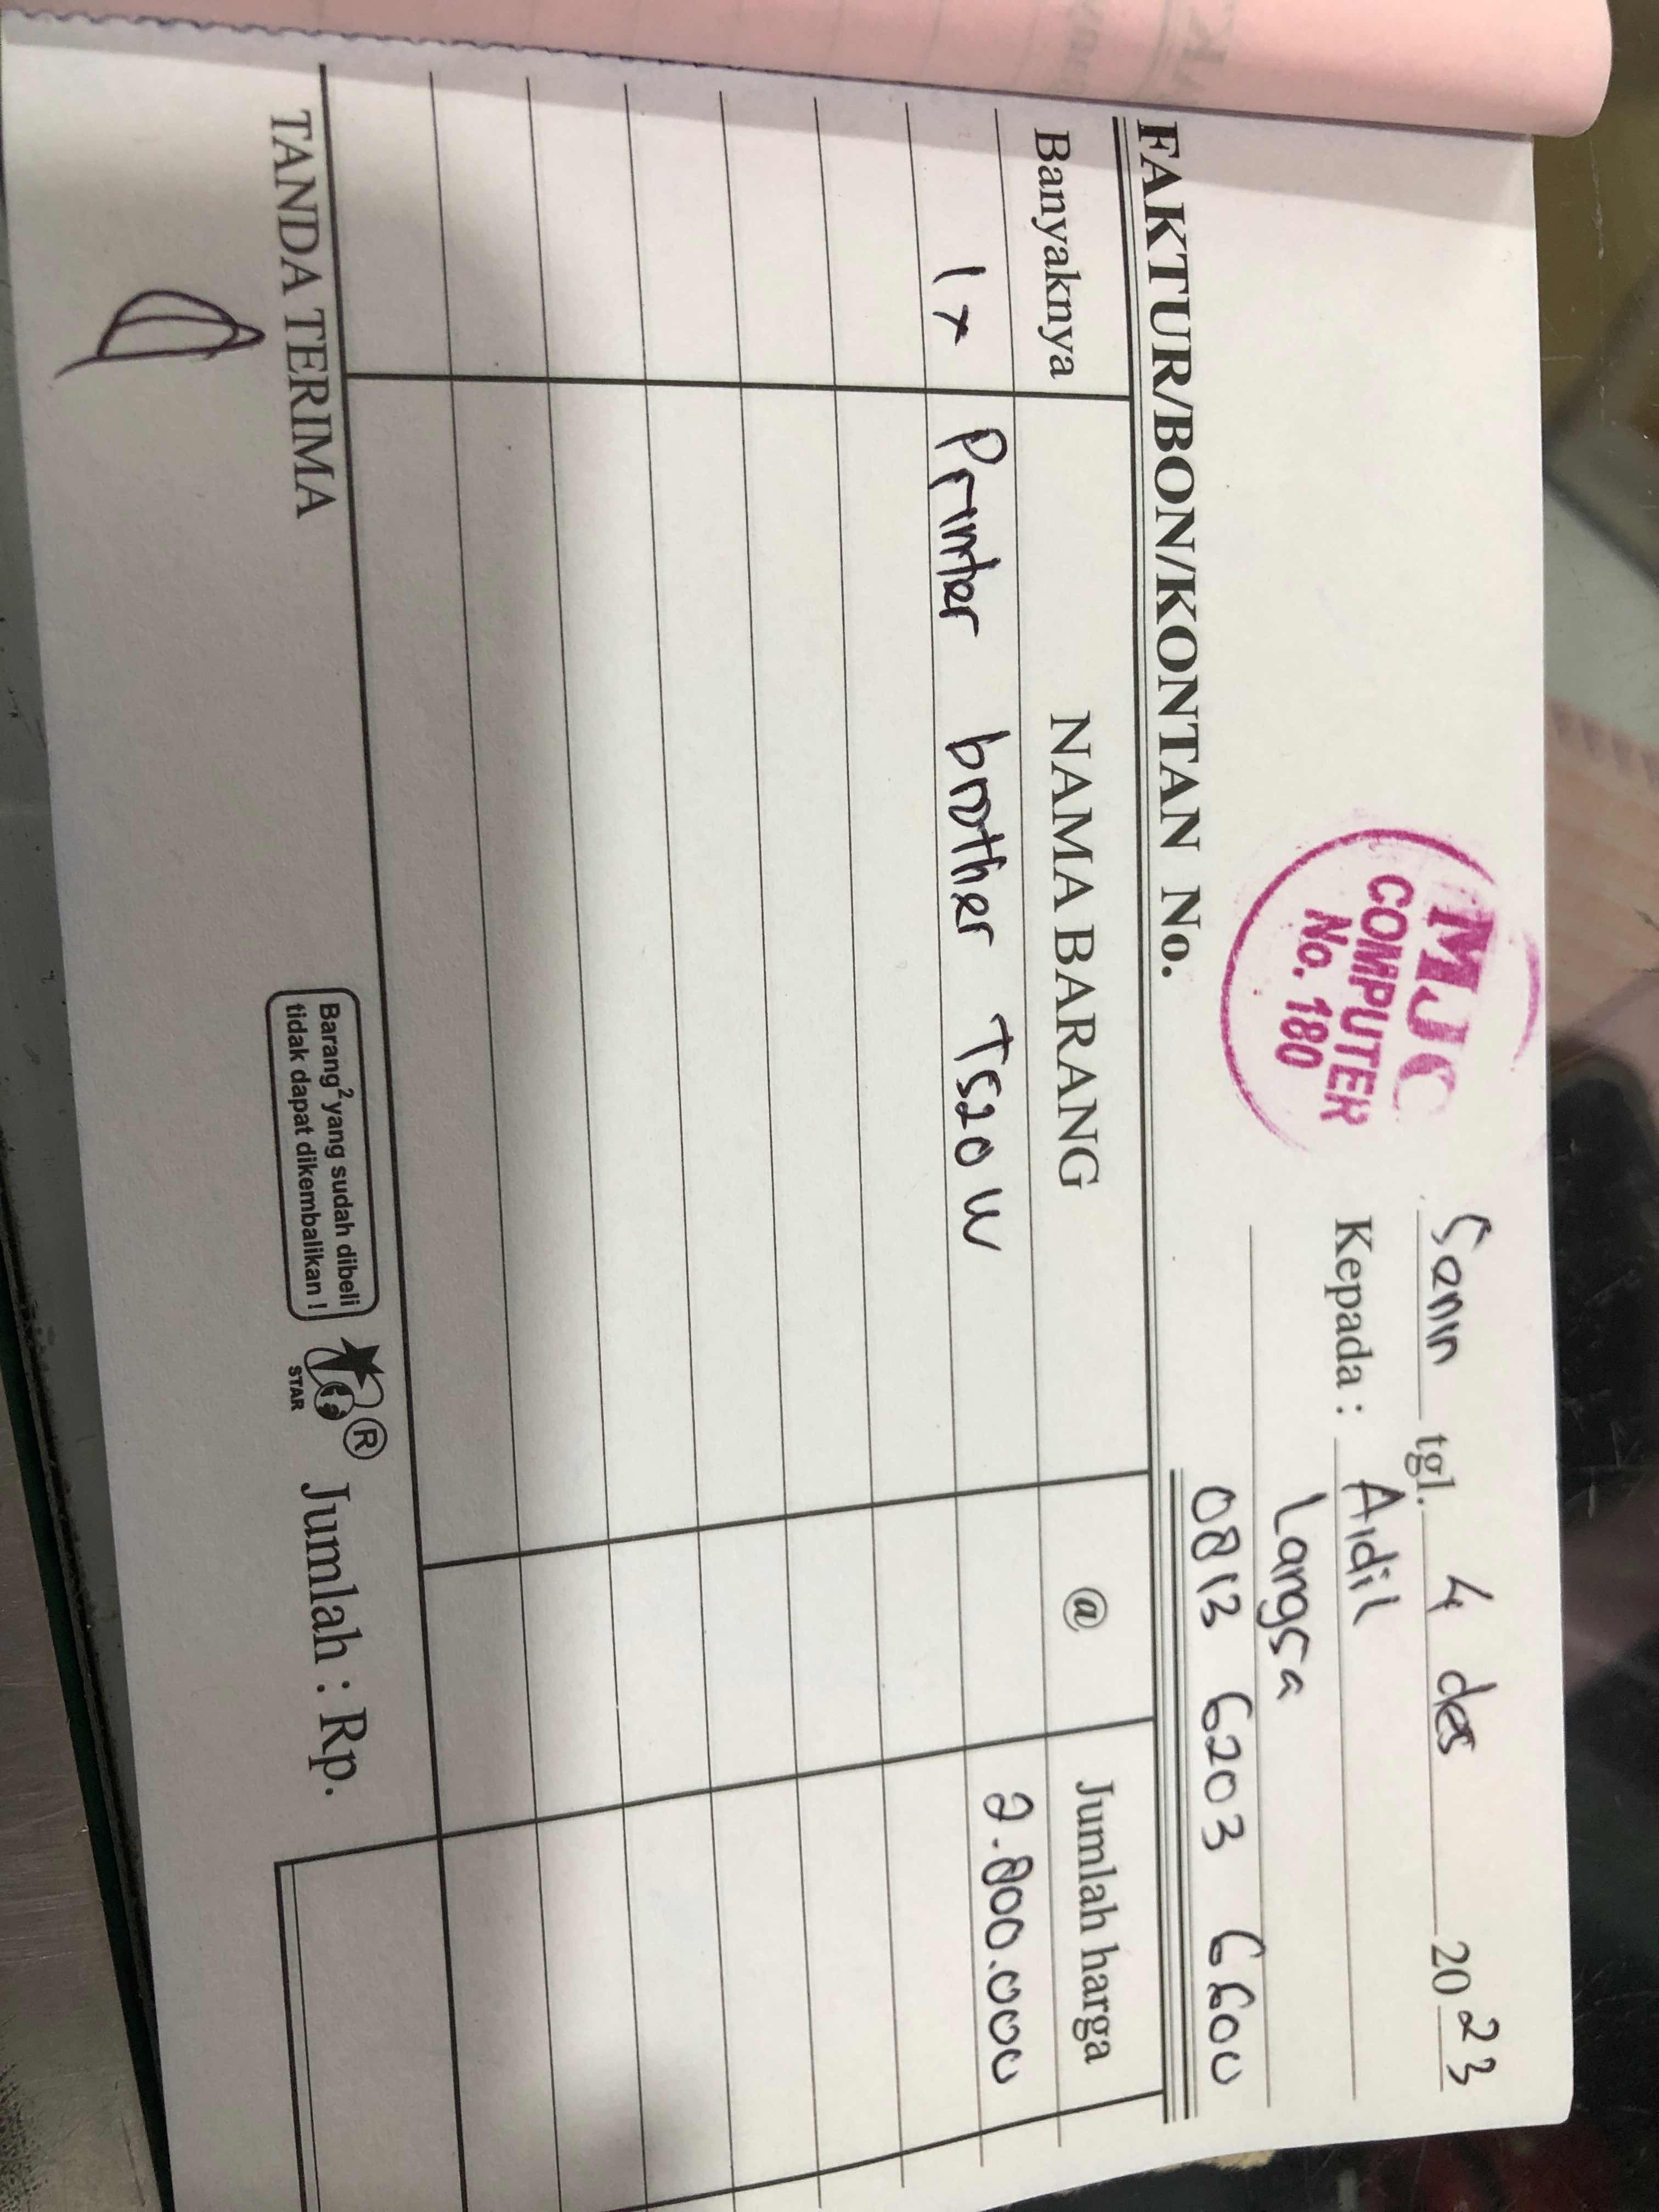 MJC
COMPUTER
No. 180
Senin tgl. 4 des 2023
Kepada : Aidil
Langsa
0813 6203 6600
FAKTUR/BON/KONTAN No.
Banyaknya NAMA BARANG @ Jumlah harga
1x Printer brother T520W 2.800.000
TANDA TERIMA
Barang² yang sudah dibeli
tidak dapat dikembalikan !
STAR
®
Jumlah : Rp.